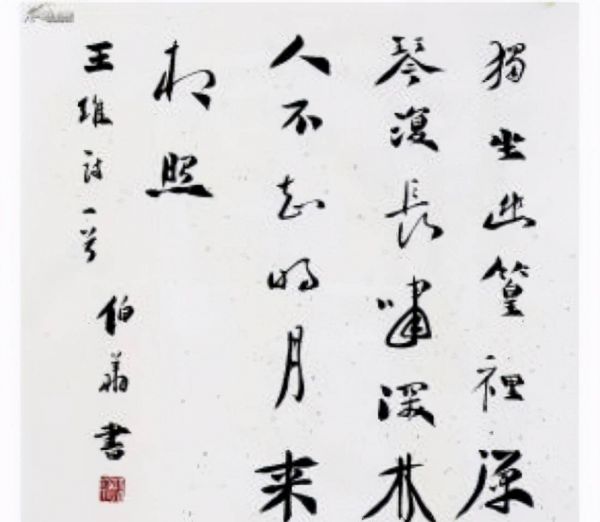 獨坐幽篁裡彈
琴復長嘯深林
人不知明月来
相照
王維詩一首
伯書